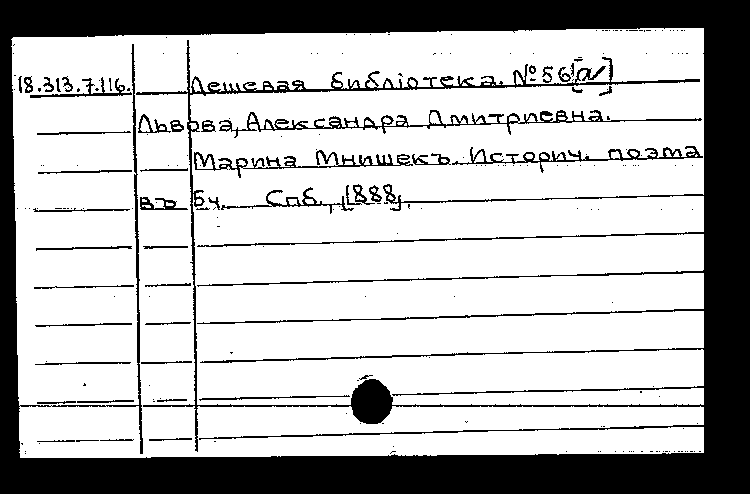 18.313.7.116. Дешевая библіотека. №56[а]
Львова, Александра Дмитриевна.
Марина Мнишекъ. Историч. поэма
въ 5ч. Спб., [1888].